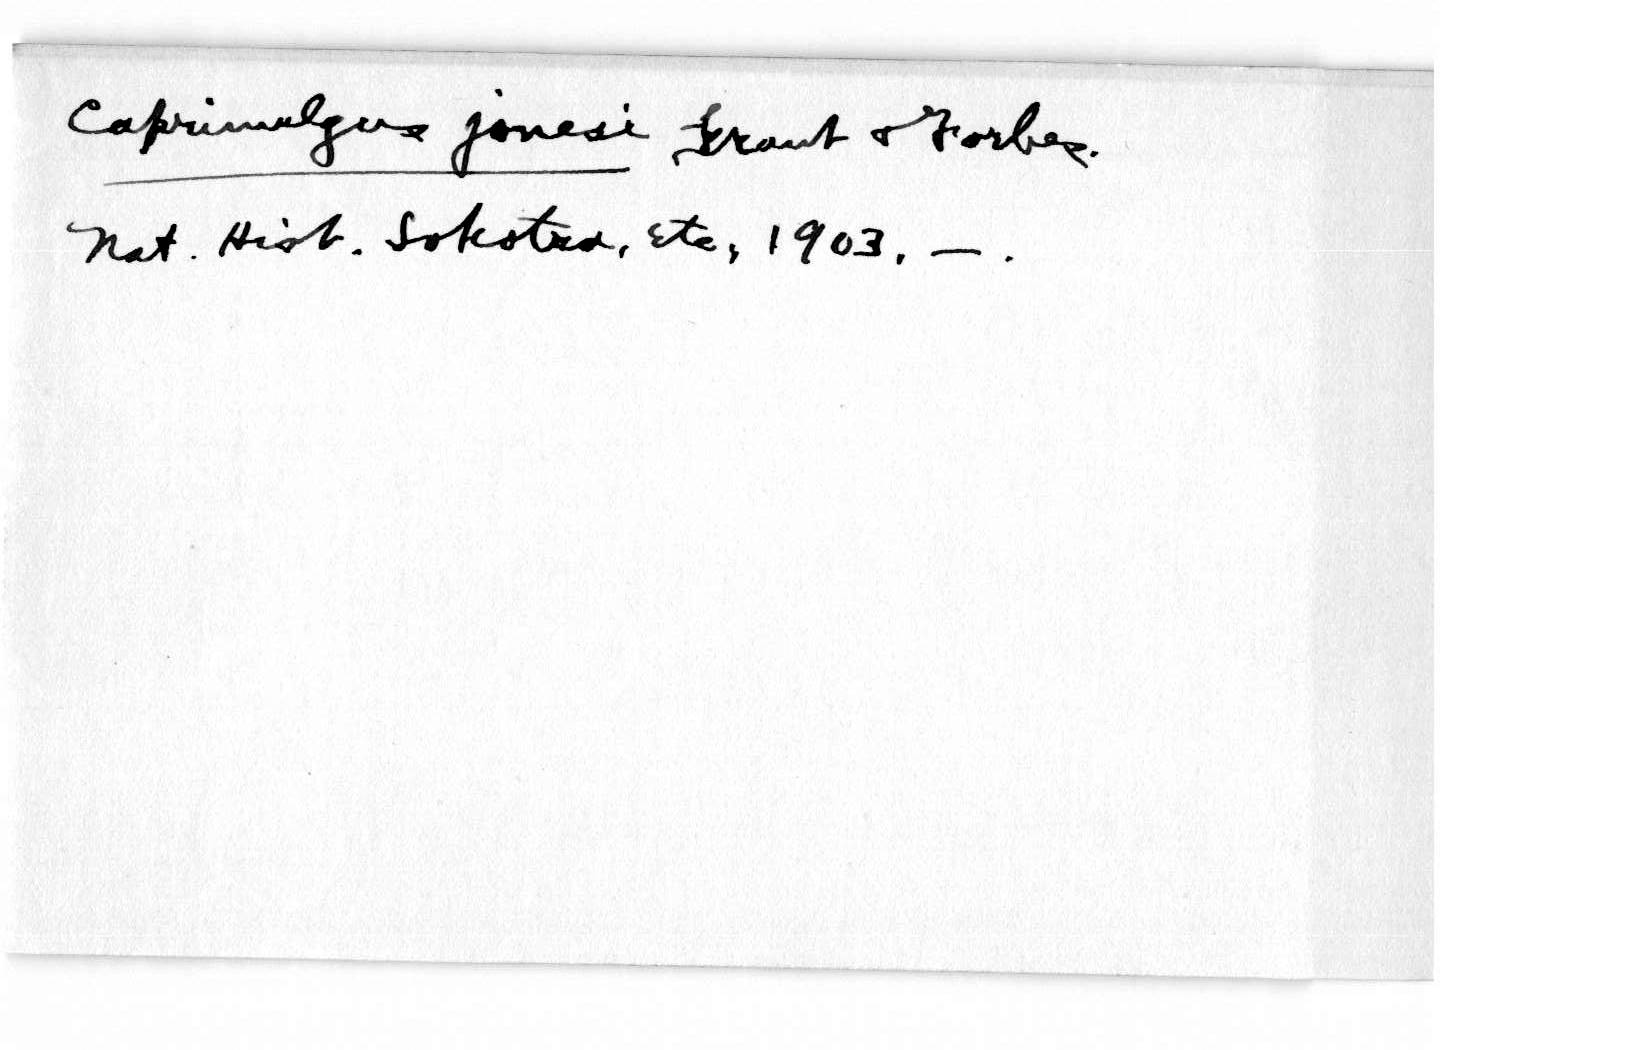 Caprimulgus jonesi Grant & Forbes.
Nat. Hist. Sokotra, etc, 1903. — .